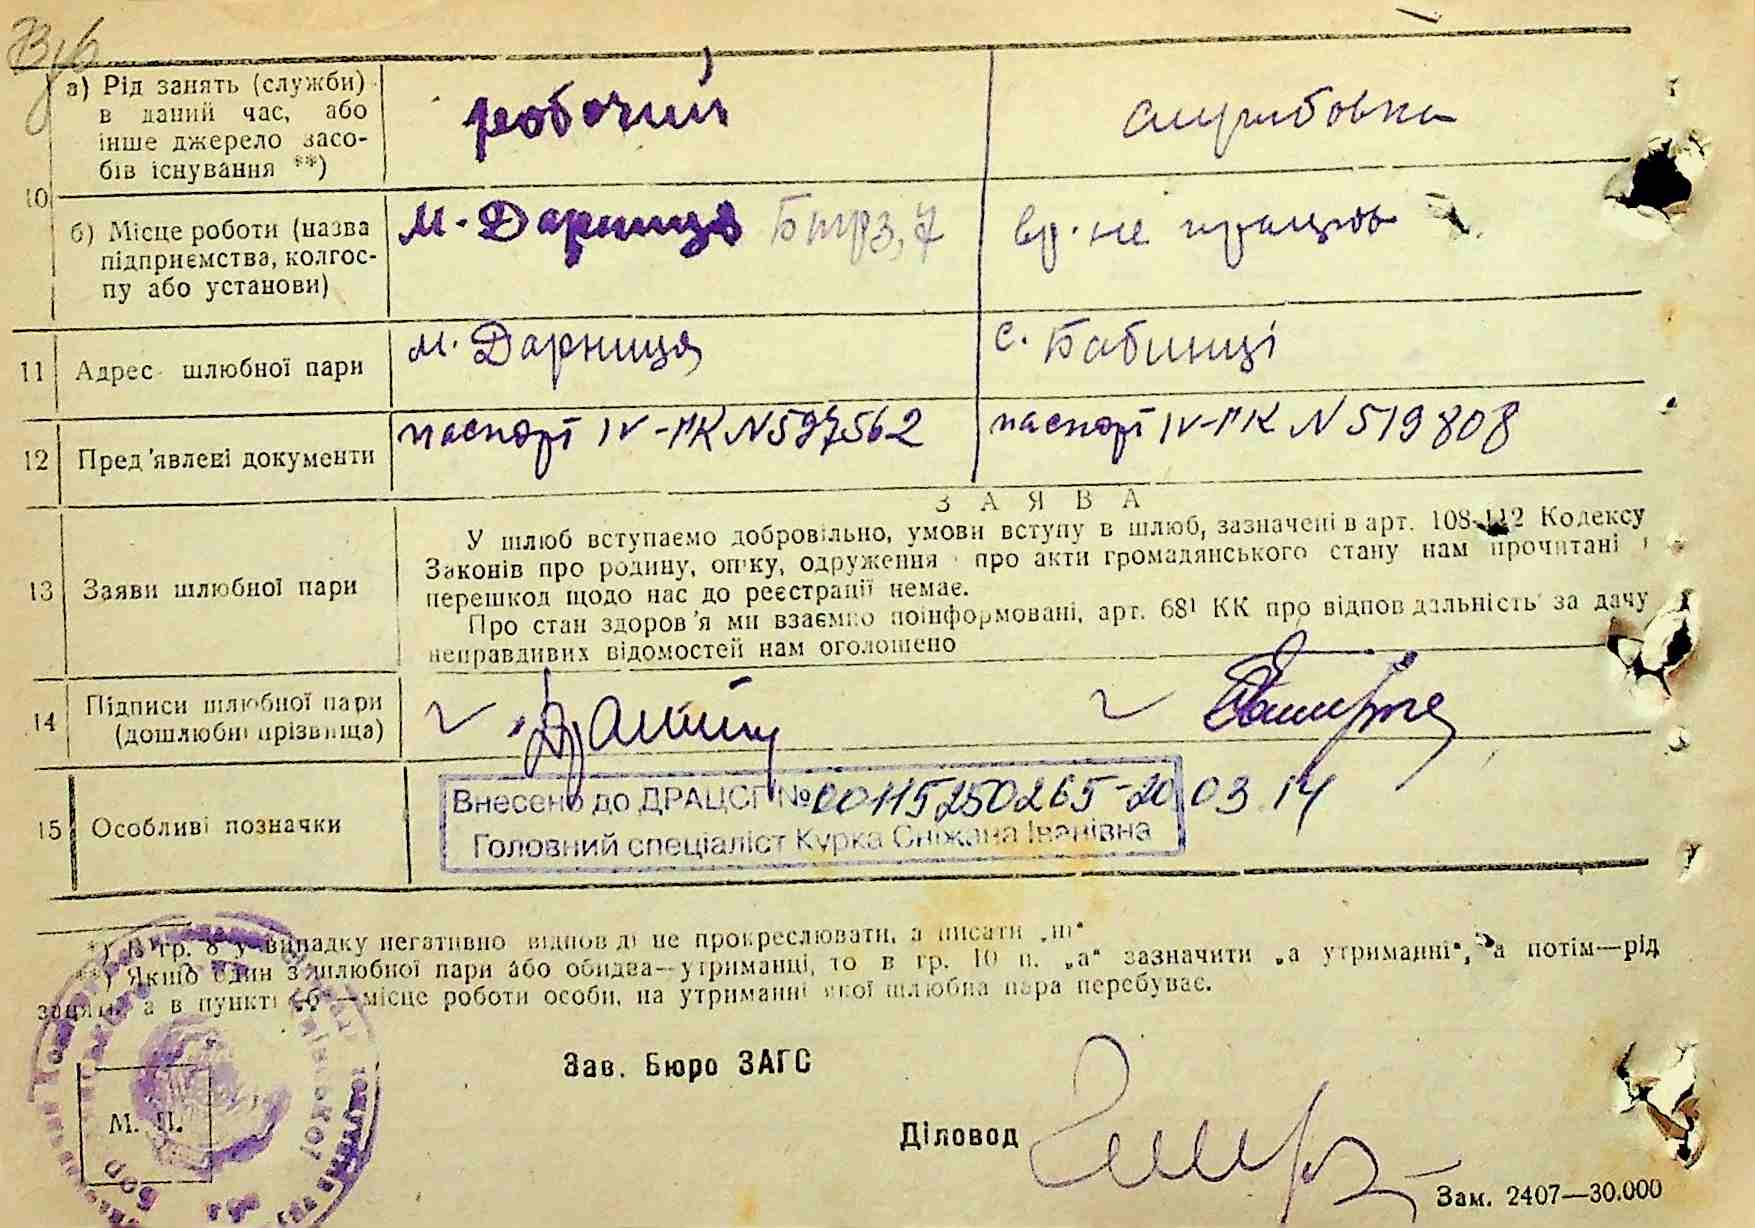 а) Рід занять (служби)
в даний час, або
інше джерело засо-
бів існування **)
робочий
службовка
10
б) Місце роботи (назва
підприємства, колгос-
пу або установи)
м. Дарниця
вр. не працює
11
Адрес шлюбної пари
м. Дарниця
с. Бабинці
12
Пред'явлені документи
паспорт IV-ПК N 597562
паспорт IV-ПК N 519808
ЗАЯВА
13
Заяви шлюбної пари
У шлюб вступаємо добровільно, умови вступу в шлюб, зазначені в арт. 108-112 Кодексу
Законів про родину, опіку, одруження і про акти громадянського стану нам прочитані і
перешкод щодо нас до реєстрації немає.
Про стан здоров'я ми взаємно поінформовані, арт. 68¹ КК про відповідальність за дачу
неправдивих відомостей нам оголошено
14
Підписи шлюбної пари
(дошлюбні прізвища)
15
Особливі позначки
Внесено до ДРАЦСГ № 00115250265-20.03.14
Головний спеціаліст Курка Сніжана Іванівна
*) В гр. 8 у випадку негативно відповіді не прокреслювати, а писати „ні“
**) Якщо один з шлюбної пари або обидва—утриманці, то в гр. 10 п. „а“ зазначити „а утриманні“, а потім—рід
занять, а в пункті „б“—місце роботи особи, на утриманні якої шлюбна пара перебуває.
Зав. Бюро ЗАГС
М. П.
Діловод
Зам. 2407—30.000